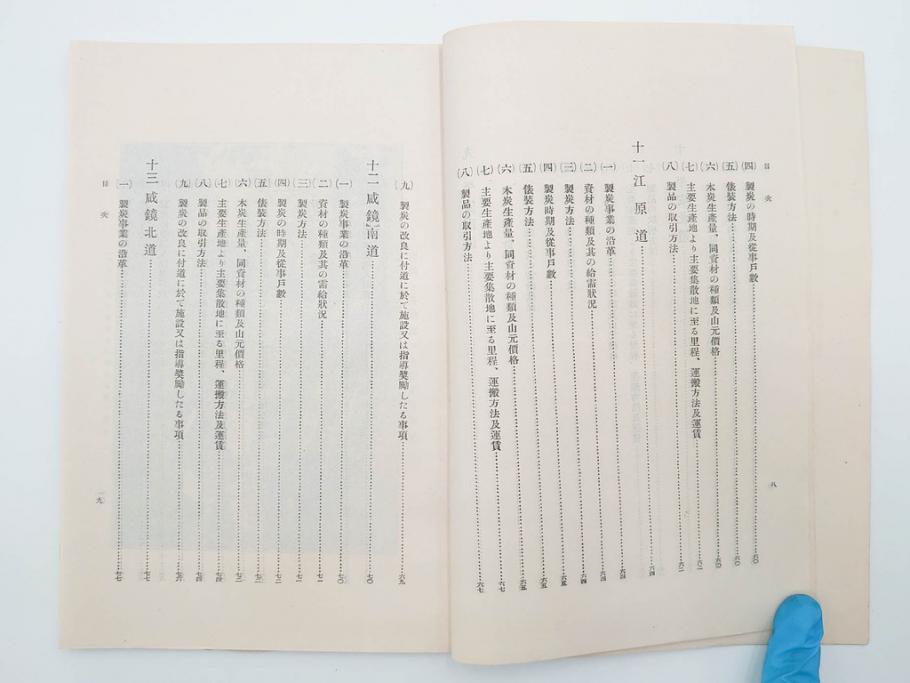 目次
八
(四) 製炭の時期及從事戶數…………六〇
(五) 俵裝方法…………六〇
(六) 木炭生產量、同資材の種類及山元價格…………六〇
(七) 主要生產地より主要集散地に至る里程、運搬方法及運賃…………六二
(八) 製品の取引方法…………六二
十一 江原道…………六四
(一) 製炭事業の沿革…………六四
(二) 資材の種類及其の給需狀況…………六四
(三) 製炭方法…………六五
(四) 製炭時期及從事戶數…………六五
(五) 俵裝方法…………六五
(六) 木炭生產量、同資材の種類及山元價格…………六七
(七) 主要生產地より主要集散地に至る里程、運搬方法及運賃…………六七
(八) 製品の取引方法…………六七
(九) 製炭の改良に付道に於て施設又は指導獎勵したる事項…………六九
十二 咸鏡南道…………七〇
(一) 製炭事業の沿革…………七〇
(二) 資材の種類及其の需給狀況…………七一
(三) 製炭方法…………七一
(四) 製炭の時期及從事戶數…………七二
(五) 俵裝方法
(六) 木炭生產量、同資材の種類及山元價格
(七) 主要生產地より主要集散地に至る里程、運搬方法及運賃…………七四
(八) 製品の取引方法…………七四
(九) 製炭の改良に付道に於て施設又は指導獎勵したる事項
十三 咸鏡北道…………七七
(一) 製炭事業の沿革…………七七
目次
一九